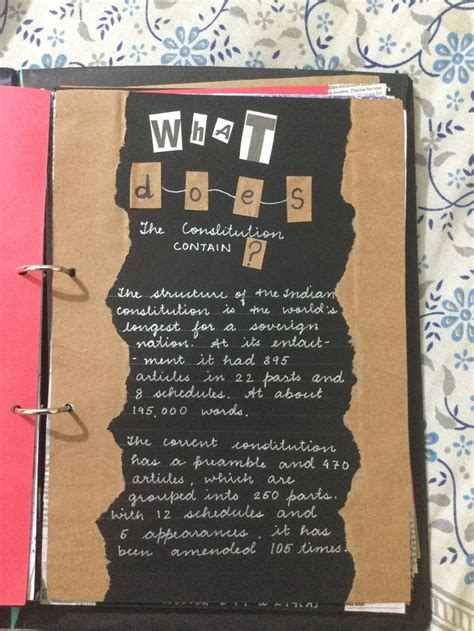 WhaT
does
The Constitution
CONTAIN ?
The structure of the Indian
constitution is the world's
longest for a soverign
nation. At its entact-
-ment it had 395
articles in 22 parts and
8 schedules. At about
195,000 words.
The corrent constitution
has a preamble and 470
articles, which are
grouped into 250 parts.
With 12 schedules and
5 appearances, it has
been amended 105 times.